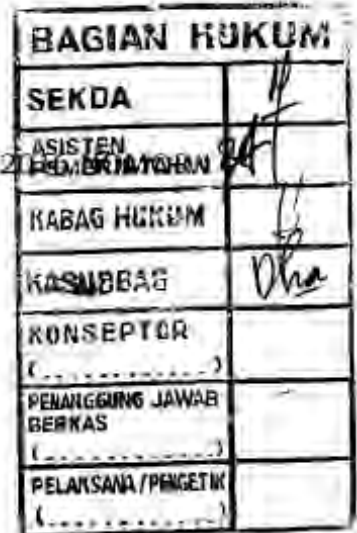 BAGIAN HUKUM
SEKDA
ASISTEN
KABAG HUKUM
KASUBBAG
KONSEPTOR
(.............)
PENANGGUNG JAWAB
BERKAS
(.............)
PELAKSANA/PENGETIK
(.............)